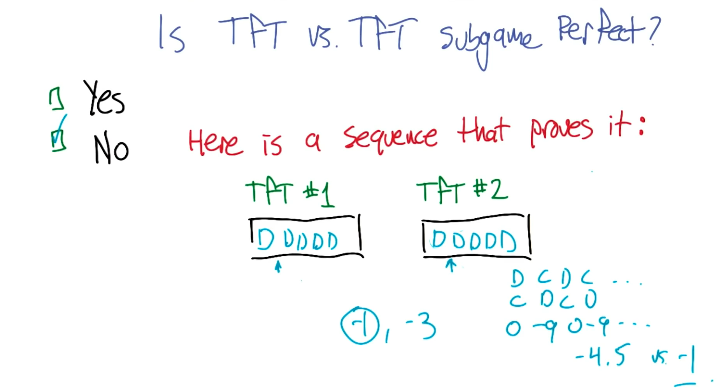 Is TFT vs. TFT subgame Perfect?
Yes
No
Here is a sequence that proves it:
TFT #1
TFT #2
D D D D D
D D D D D
D C D C ...
C D C D
0 -9 0 -9 ...
-1, -3
-4.5 vs -1